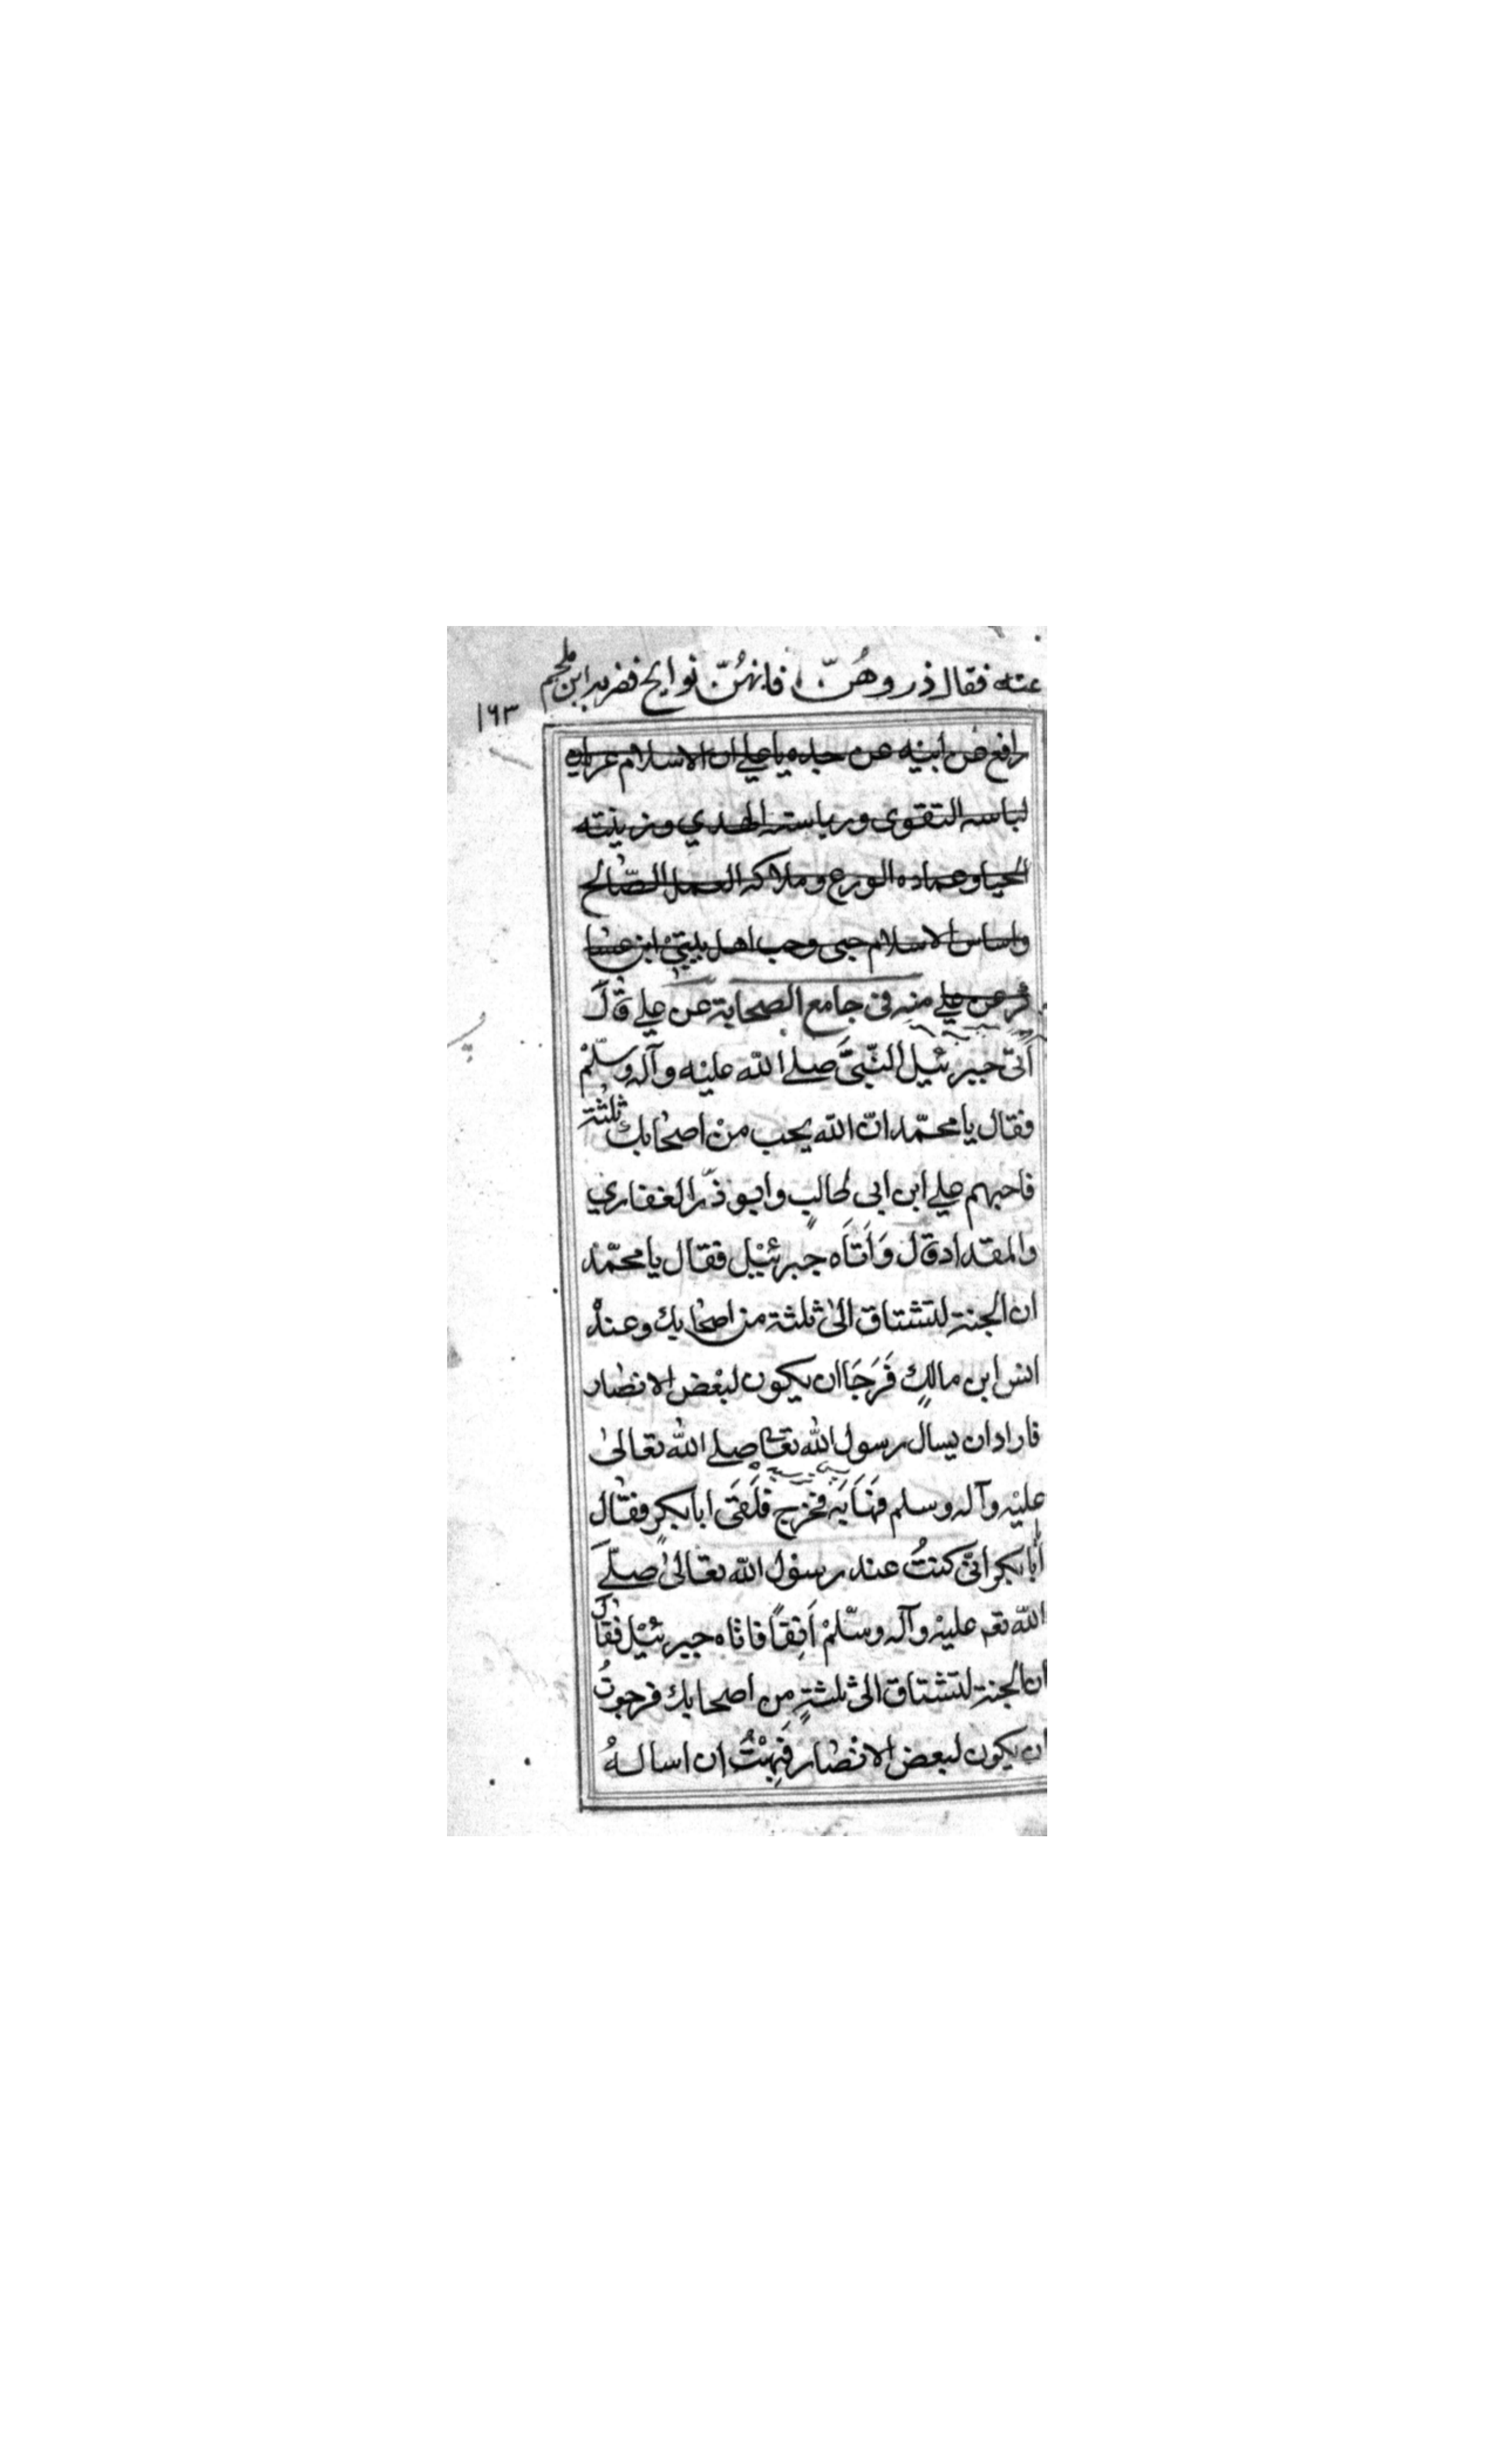 عنه فقال ذروهنّ فانهُنّ نوايح فضربه ابن ملجم
١٦٣
رافع عن ابيه عن جده يا علي ان الاسلام عريان
لباسه التقوى ورياسته الهدي وزينته
الحيا وعماده الورع وملاكه العمل الصّالح
واساس الاسلام حبى وحب اهل بيتى ابن عسا
كر عن علي منه فى جامع الصحابة عن علي قال
اَتى جبرئيل النّبىَّ صلے الله عليه وآله وسلّم
فقال يا محمّد انّ الله يحب من اصحابك ثلثة
فاحبهم علي ابن ابى طالبٍ وابو ذرّ الغفاري
والمقداد قال وَاَتَاَه جبرئيل فقال يا محمّد
ان الجنة لتشتاق الى ثلثة من اصحابك وعند
انس ابن مالكٍ فَرَجَا ان يكون لبعض الانصار
فاراد ان يسال رسول الله تعالى صلے الله تعالى
عليه وآله وسلم فَهَابَه فخرج فلَقَى ابا بكرٍ فقال
اَبا بكر انّى كنتُ عند رسول الله تعالى صلّے
الله تعم عليه وآله وسلّم اَنِفًا فاتاه جبرئيل فقال
ان الجنة لتشتاق الى ثلثةٍ من اصحابك فرجوتُ
ان يكون لبعض الانصار فَهِبْتُ ان اسالهُ